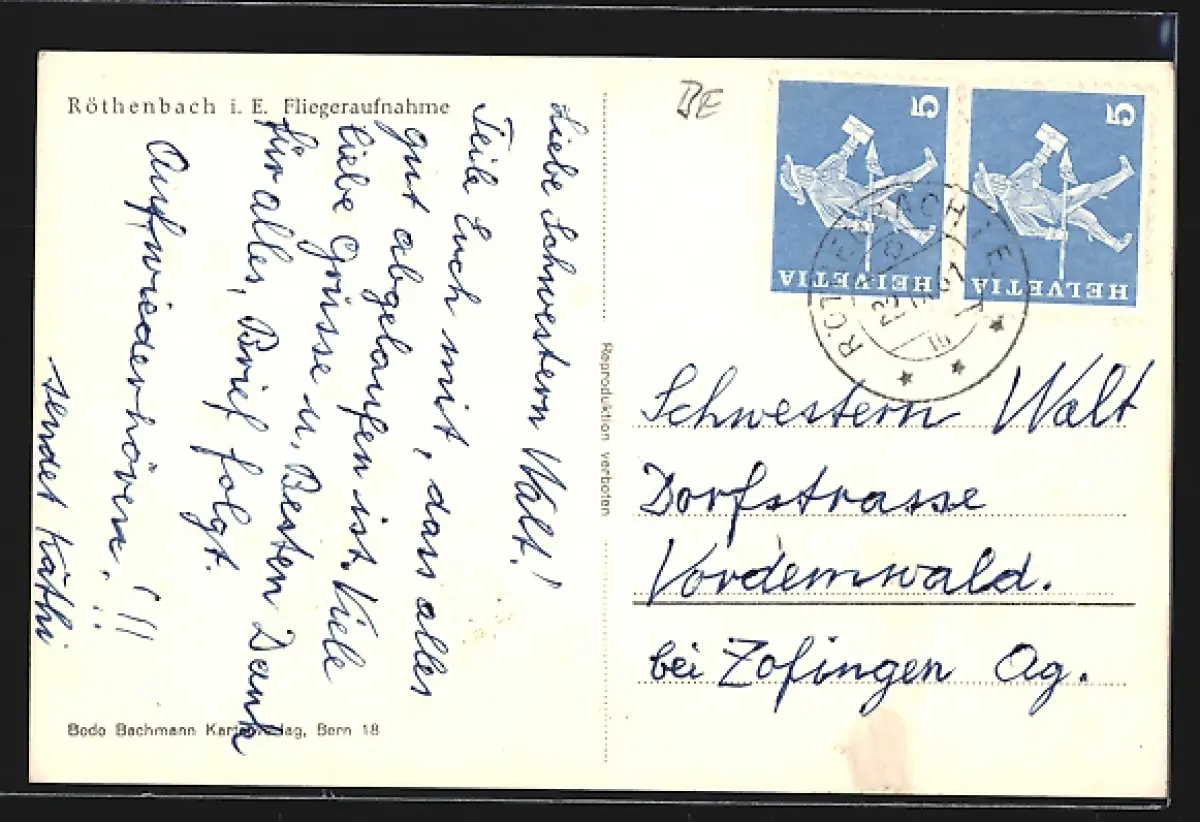 Röthenbach i. E. Fliegeraufnahme
Liebe Schwestern Walt!
Teile Euch mit, dass alles
gut abgelaufen ist. Viele
liebe Grüsse u. Besten Dank
für alles, Brief folgt.
Auf wiederhören!!!
sendet Käthi
Bodo Bachmann Kartenverlag, Bern 18
Reproduktion verboten
BE
5
HELVETIA
5
HELVETIA
22. 61
Schwestern Walt
Dorfstrasse
Vordemwald.
bei Zofingen Ag.